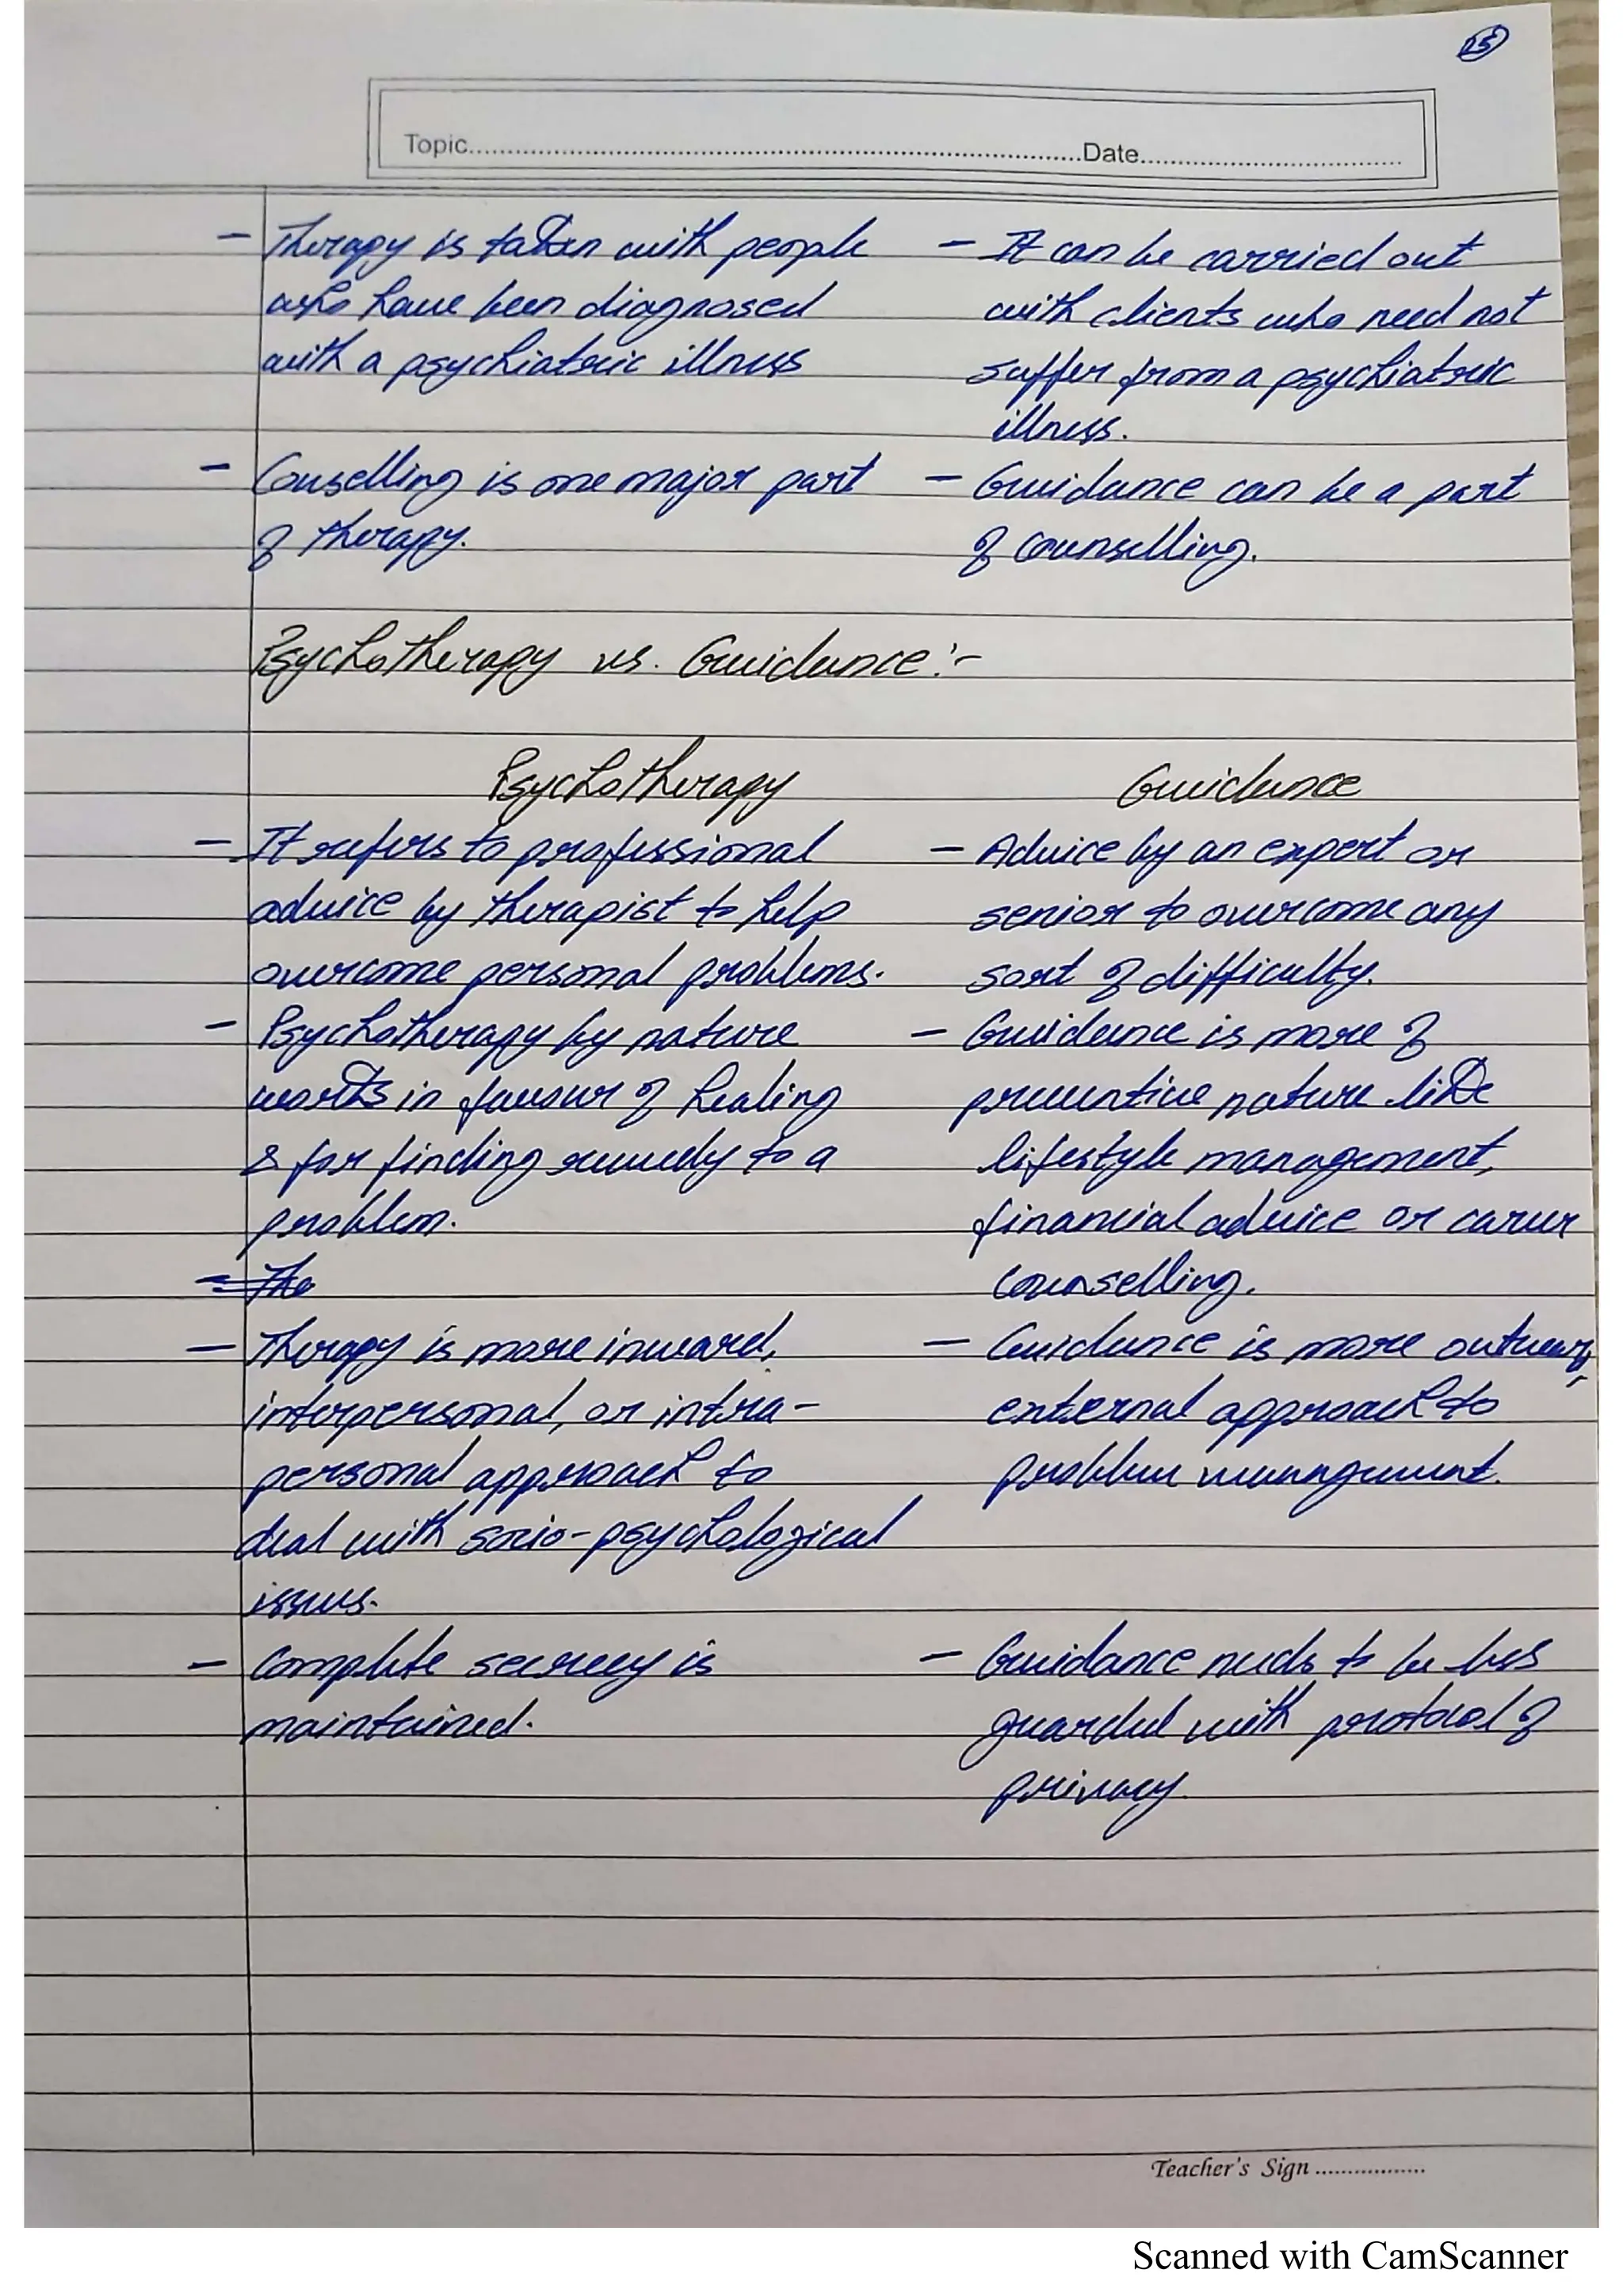 25
Topic..........Date..........
- Therapy is taken with people
who have been diagnosed
with a psychiatric illness
- It can be carried out
with clients who need not
suffer from a psychiatric
illness.
- Couselling is one major part
of therapy.
- Guidance can be a part
of counselling.
Psychotherapy vs. Guidance:-
Psychotherapy
Guidance
- It refers to professional
advice by therapist to help
overcome personal problems.
- Advice by an expert or
senior to overcome any
sort of difficulty.
- Psychotherapy by nature
works in favour of healing
& for finding remedy to a
problem.
- Guidance is more of
preventive nature like
lifestyle management,
financial advice or career
counselling.
- The
- Therapy is more inward,
interpersonal, or intra-
personal approach to
deal with socio-psychological
issues.
- Guidance is more outward,
external approach to
problem management.
- Complete secrecy is
maintained.
- Guidance needs to be less
guarded with protocol of
privacy.
Teacher's Sign ..........
Scanned with CamScanner